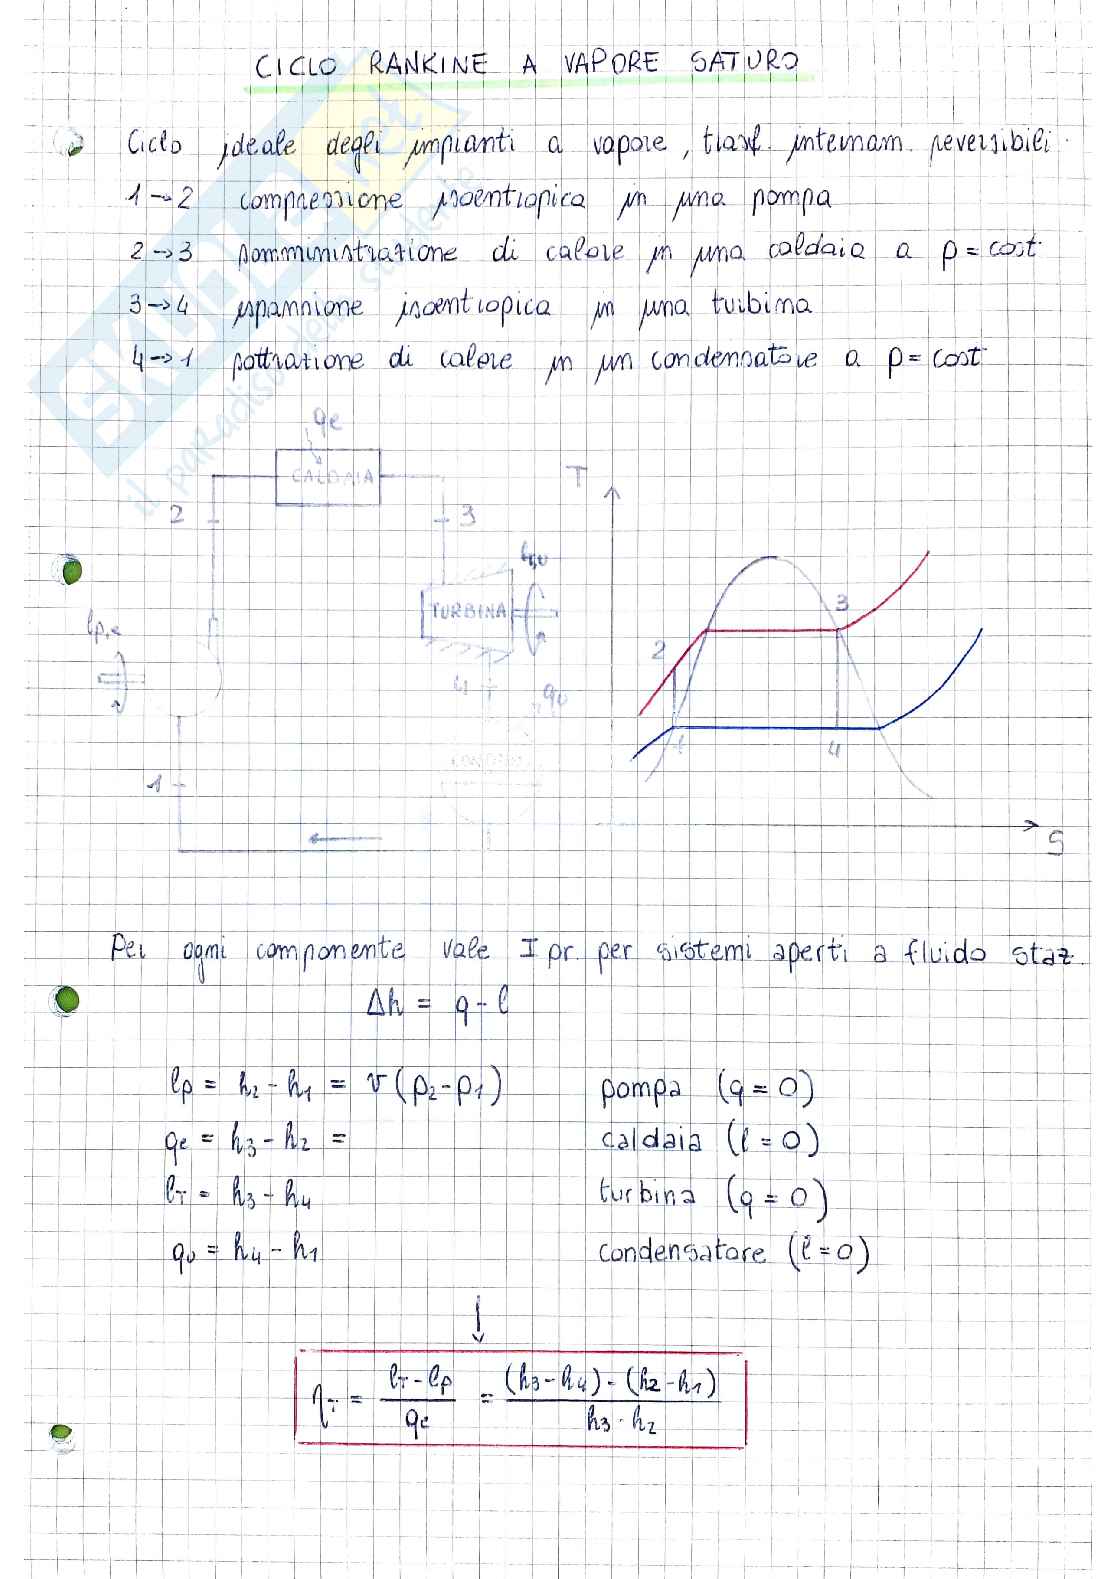 CICLO RANKINE A VAPORE SATURO
Ciclo ideale degli impianti a vapore, trasf. internam. reversibili
1→2 compressione isoentropica in una pompa
2→3 somministrazione di calore in una caldaia a p = cost
3→4 espansione isoentropica in una turbina
4→1 sottrazione di calore in un condensatore a p = cost
SKUOLA.net
il paradiso dello studente
qe
CALDAIA
2
3
TURBINA
lp,e
4
qu
1
T
3
2
1
4
S
Per ogni componente vale I pr. per sistemi aperti a fluido staz.
Δh = q - l
lp = h2 - h1 = v (p2 - p1) pompa (q = 0)
qe = h3 - h2 = caldaia (l = 0)
lT = h3 - h4 turbina (q = 0)
qu = h4 - h1 condensatore (l = 0)
↓
ηT = (lT - lp) / qe = ((h3 - h4) - (h2 - h1)) / (h3 - h2)